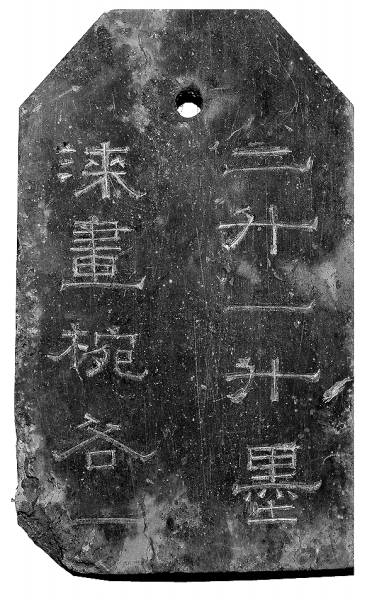 二升一升墨
漆畫椀各一